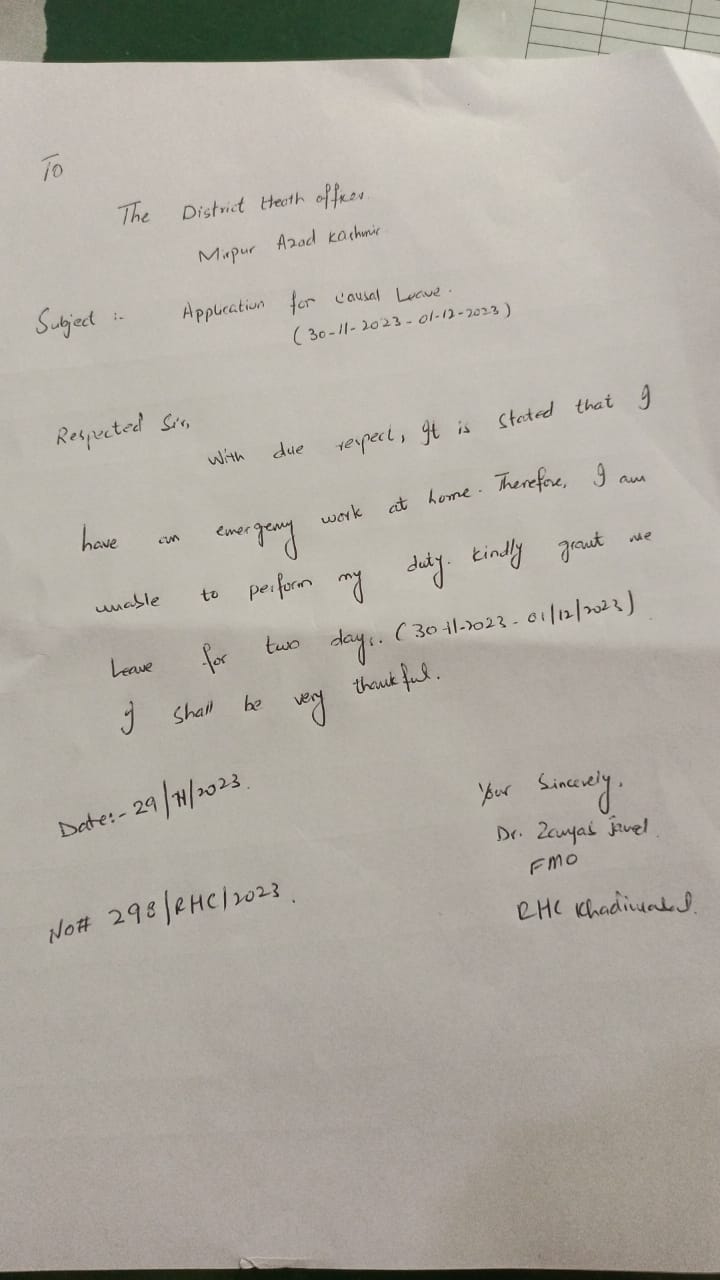 To
The District Heath officer
Mirpur Azad Kashmir
Subject :- Application for Causal Leave.
(30-11-2023 - 01-12-2023)
Respected Sir,
With due respect, It is stated that I
have an emergency work at home. Therefore, I am
unable to perform my duty. kindly grant me
Leave for two days. (30-11-2023 - 01/12/2023)
I shall be very thankful.
Date:- 29/11/2023.
Your Sincerely,
Dr.
FMO
No# 298/RHC/2023.
RHC